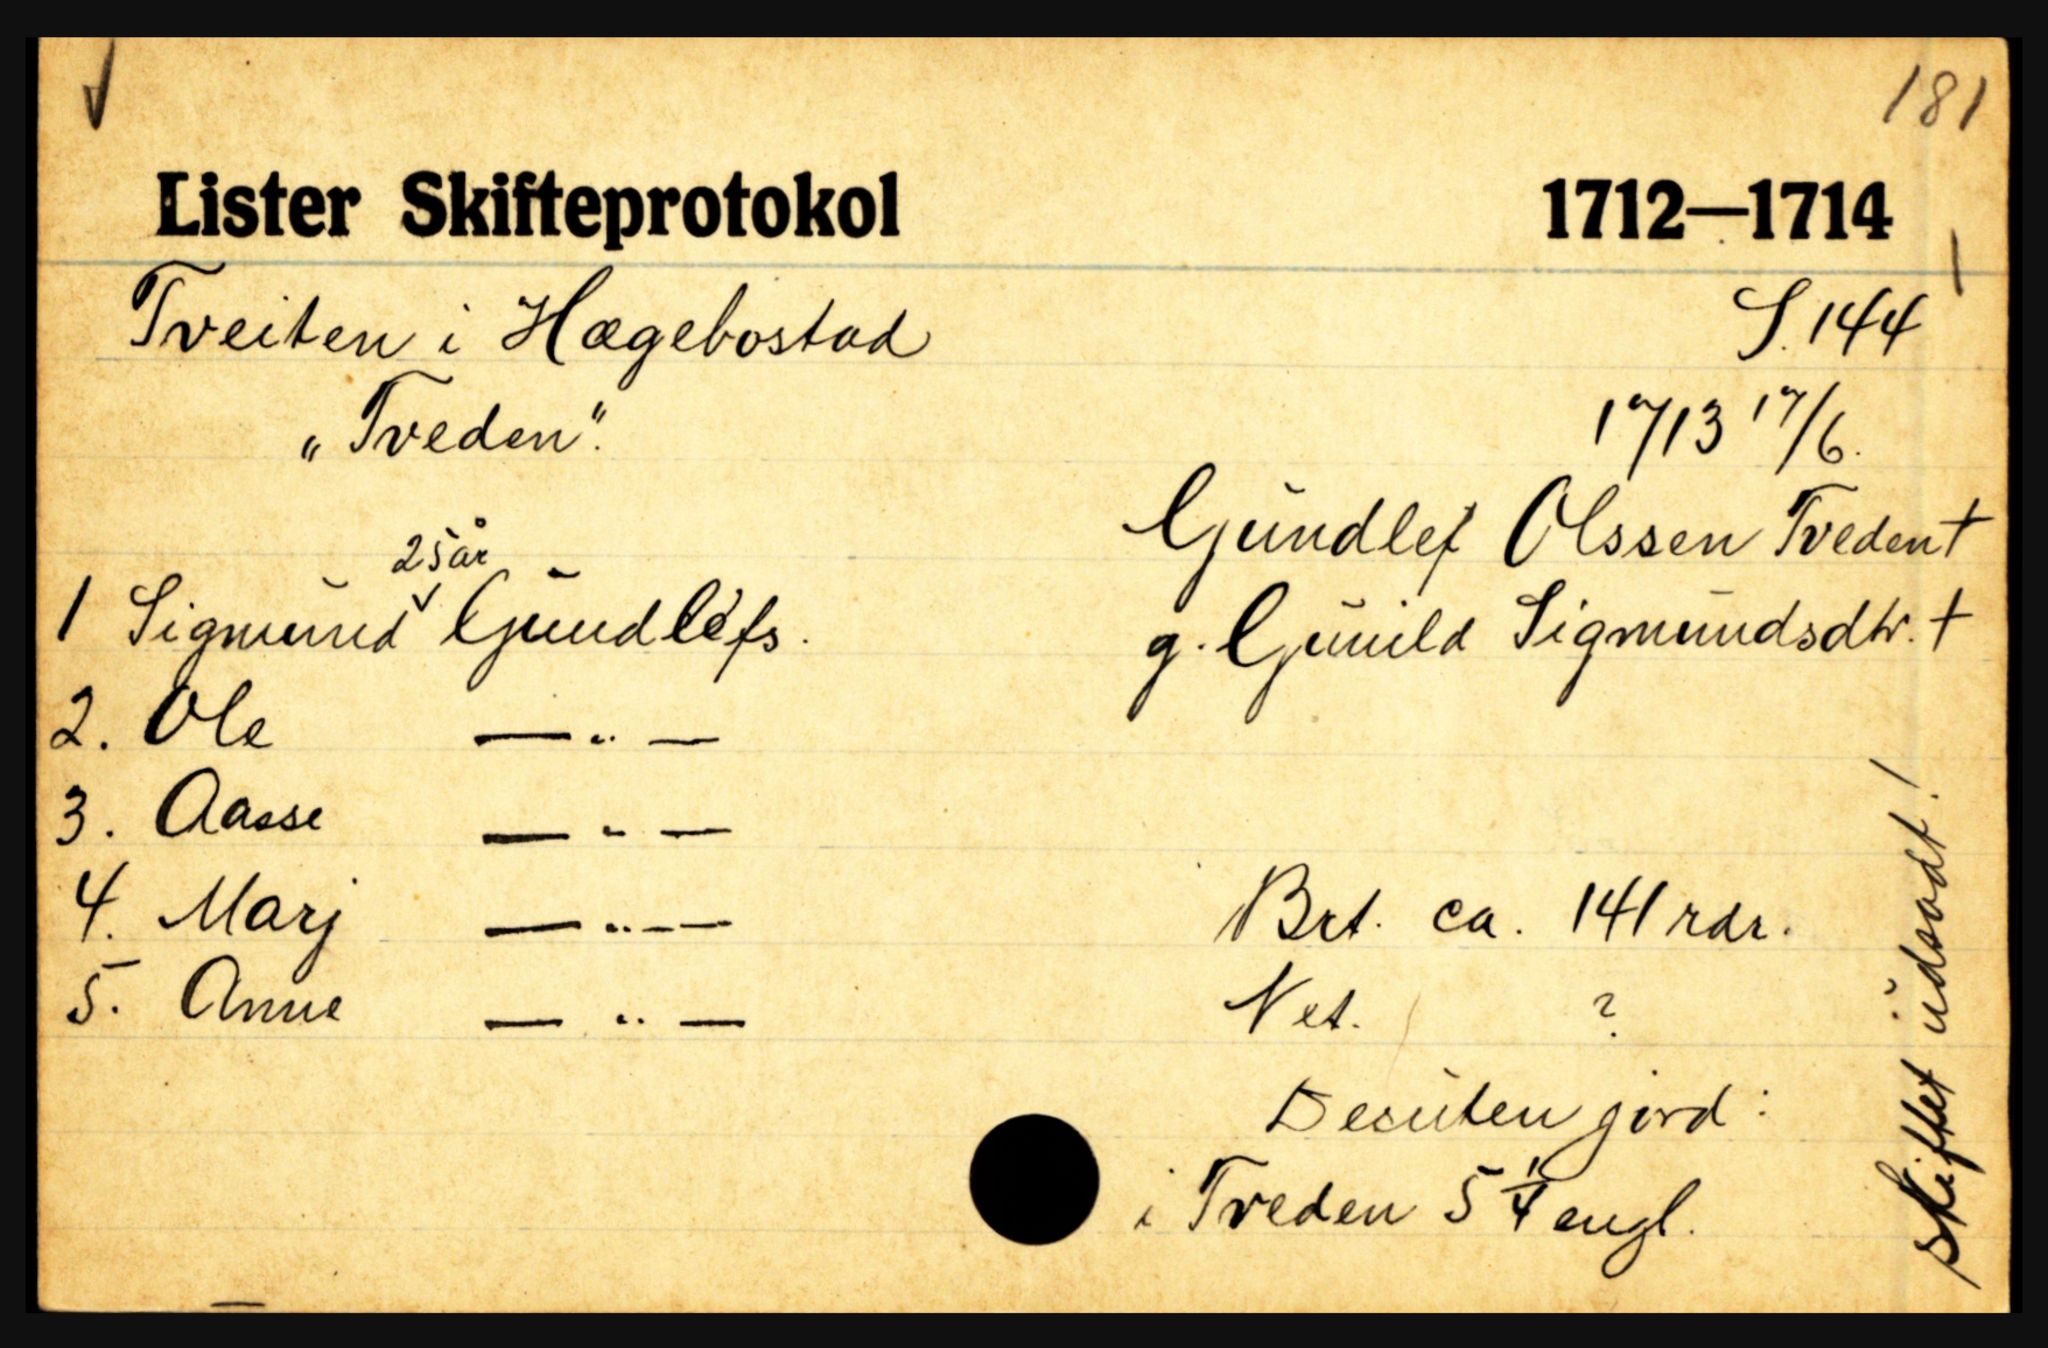 181
Lister Skifteprotokol 1712—1714
Tveiten i Hægebostad S. 144
„Tveden“. 1713 17/6.
Gŭndlef Olssen Tveden †
25 år
1 Sigmŭnd Gŭndlefs. g. Gŭnild Sigmŭndsdtr. †
2. Ole —„—
3. Aasse —„—
4. Marj —„—
5. Anne —„—
Brt. ca. 141 rdr.
Net. ?
Desŭten jord:
i Tveden 5 1/4 engl.
skiftet ŭdsadt!